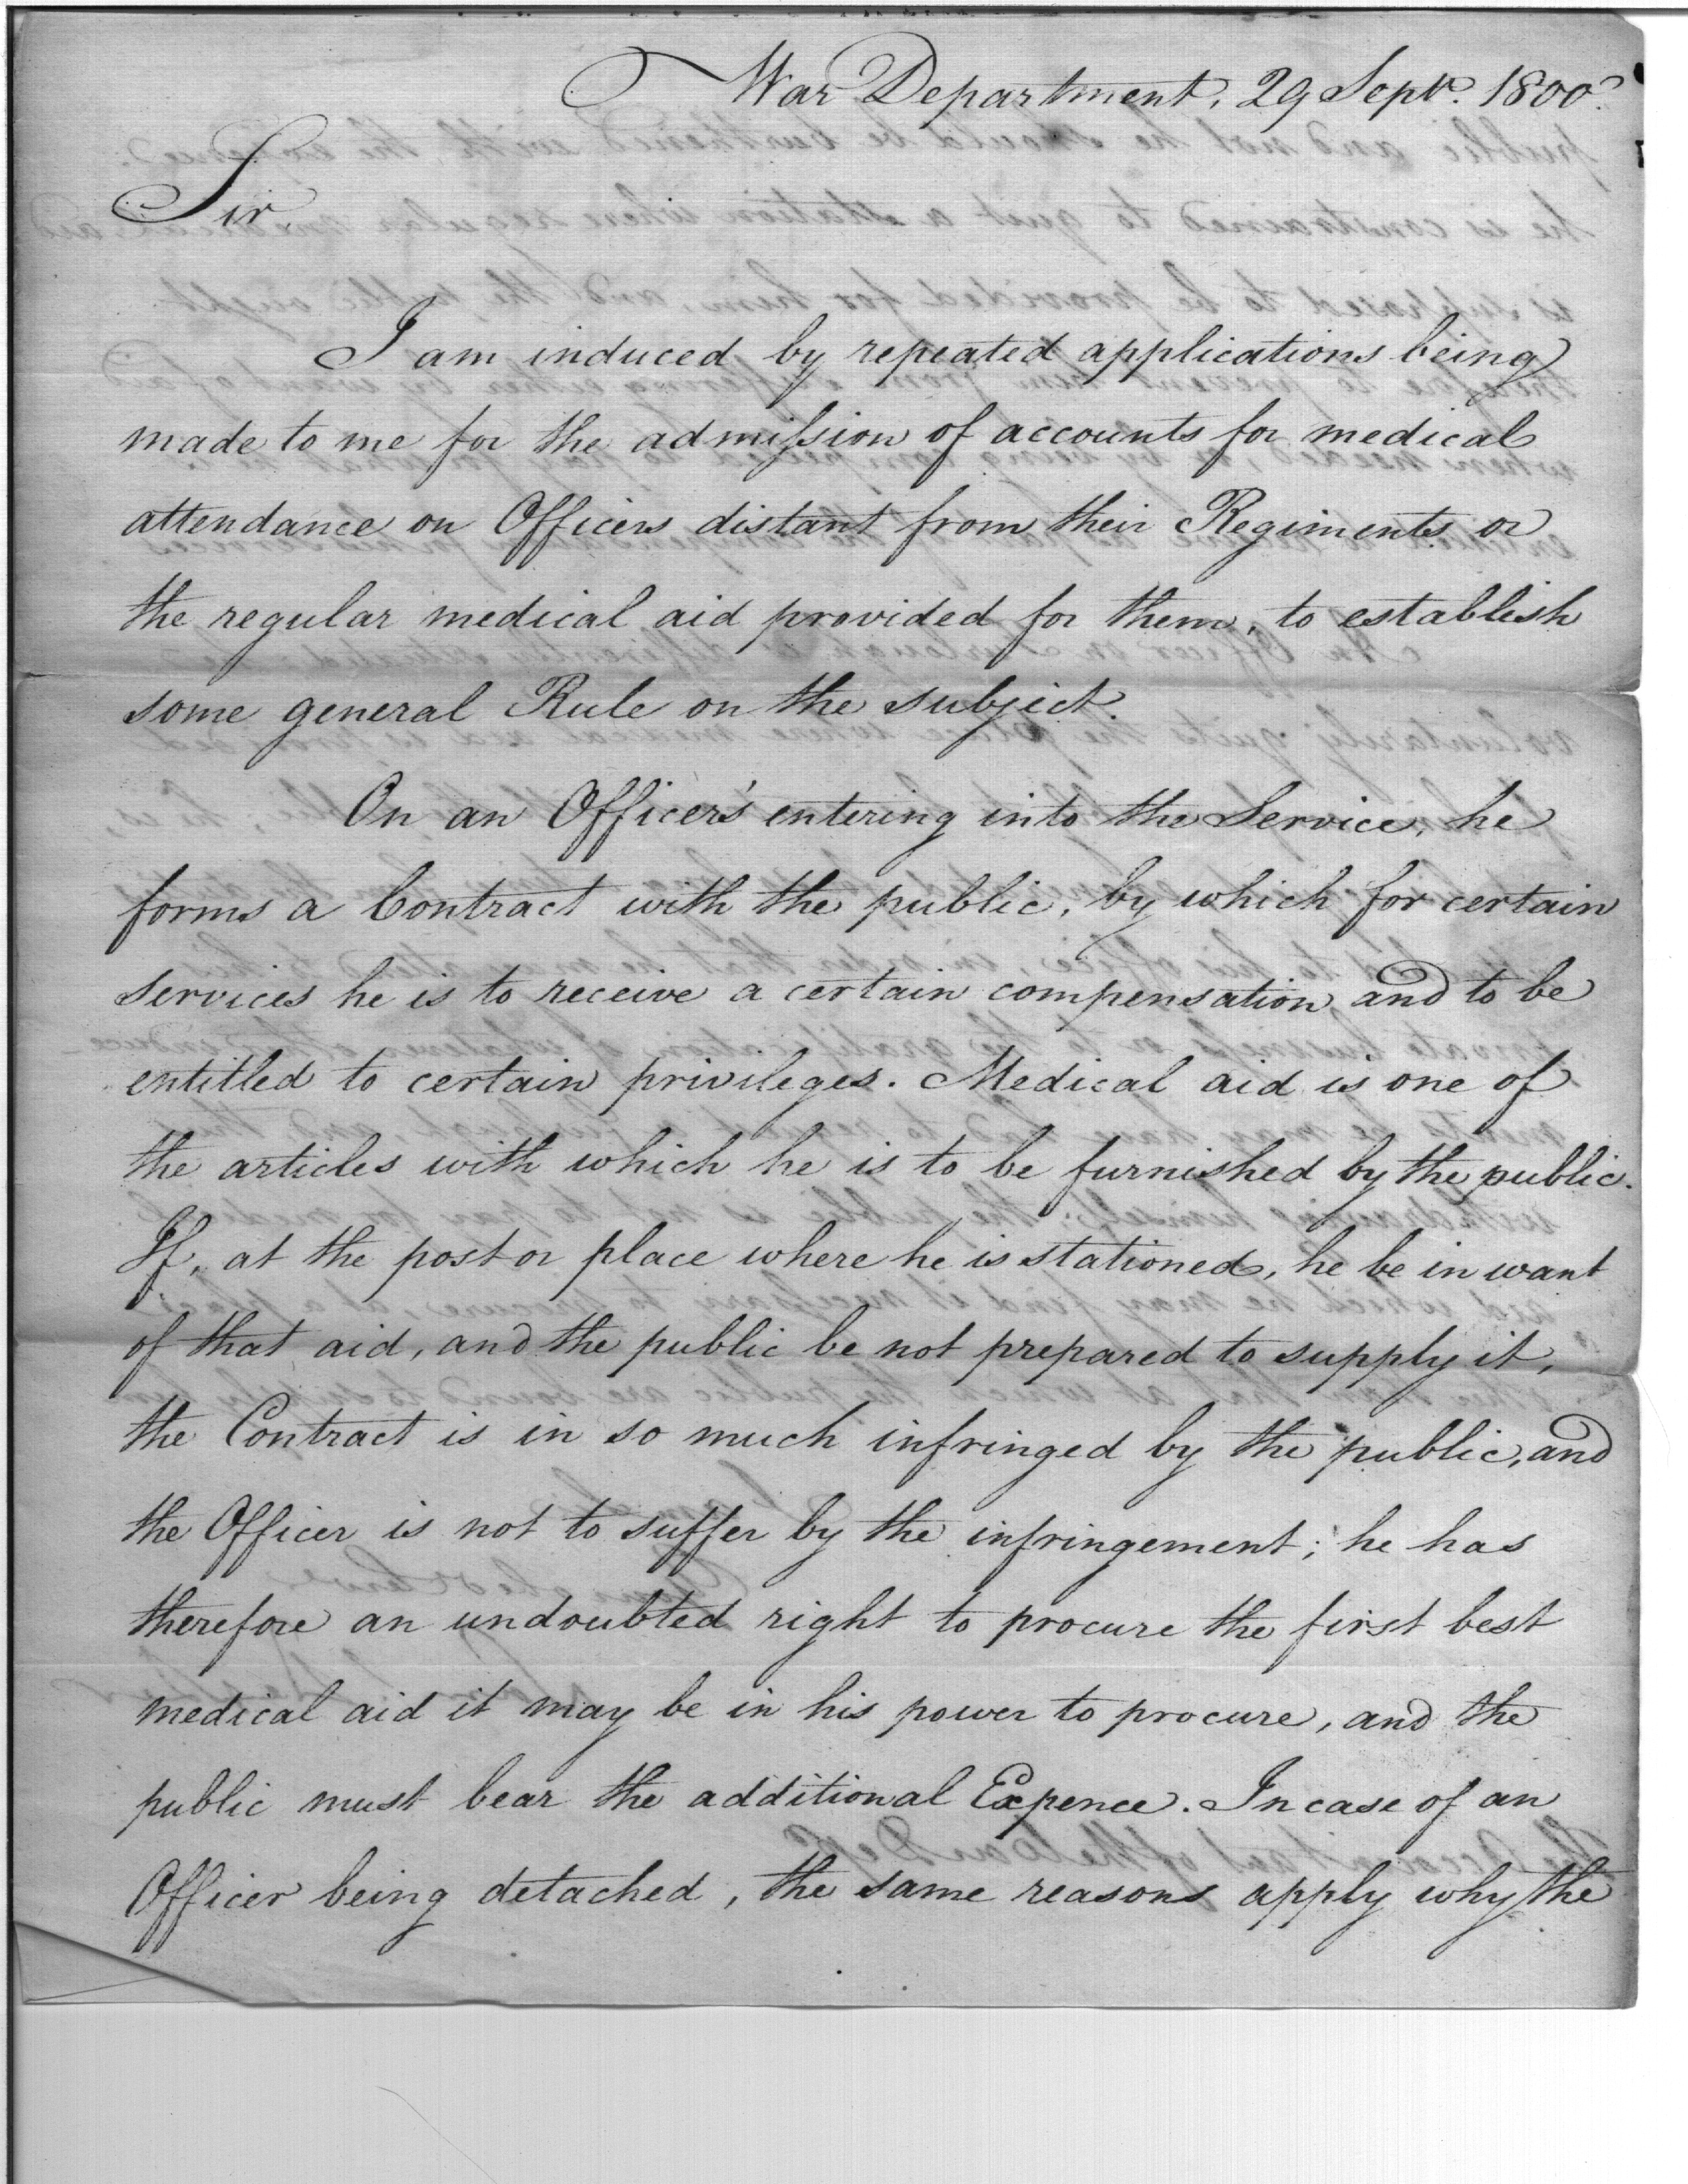 War Department, 29 Sept. 1800.
Sir,
I am induced by repeated applications being
made to me for the admission of accounts for medical
attendance on Officers distant from their Regiments or
the regular medical aid provided for them, to establish
some general Rule on the subject.
On an Officer's entering into the Service, he
forms a Contract with the public, by which for certain
services he is to receive a certain compensation, and to be
entitled to certain privileges. Medical aid is one of
the articles with which he is to be furnished by the public.
If, at the post or place where he is stationed, he be in want
of that aid, and the public be not prepared to supply it,
the Contract is in so much infringed by the public, and
the Officer is not to suffer by the infringement; he has
therefore an undoubted right to procure the first best
medical aid it may be in his power to procure, and the
public must bear the additional Expence. In case of an
Officer being detached, the same reasons apply why the